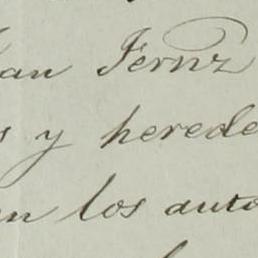 an Fernz
s y herede
n los auto